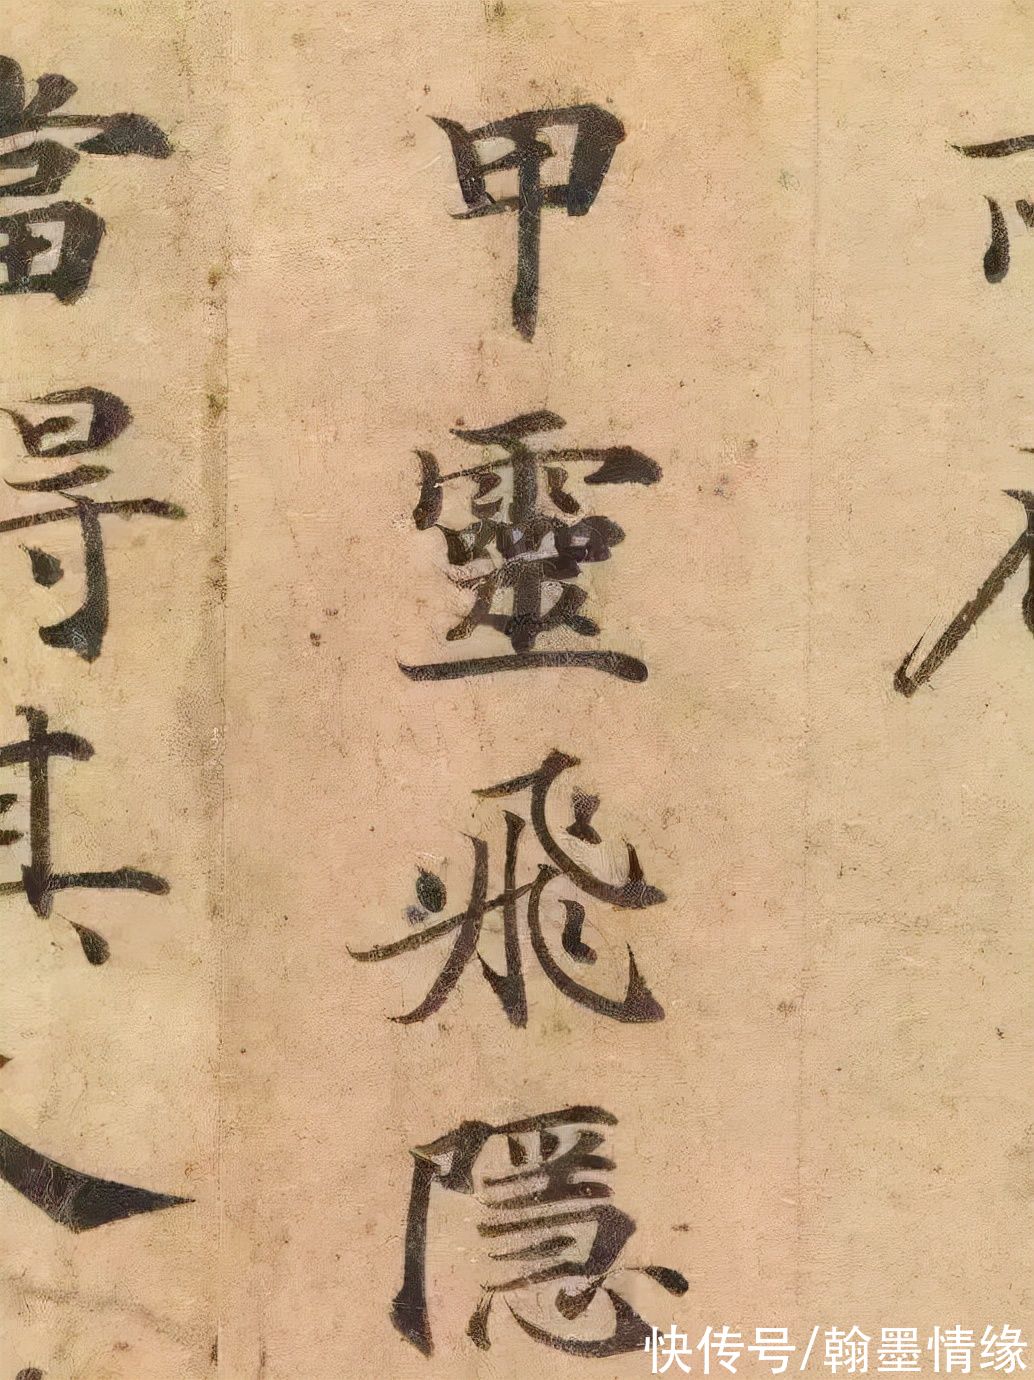 甲靈飛隱
當得其
快传号/翰墨情缘